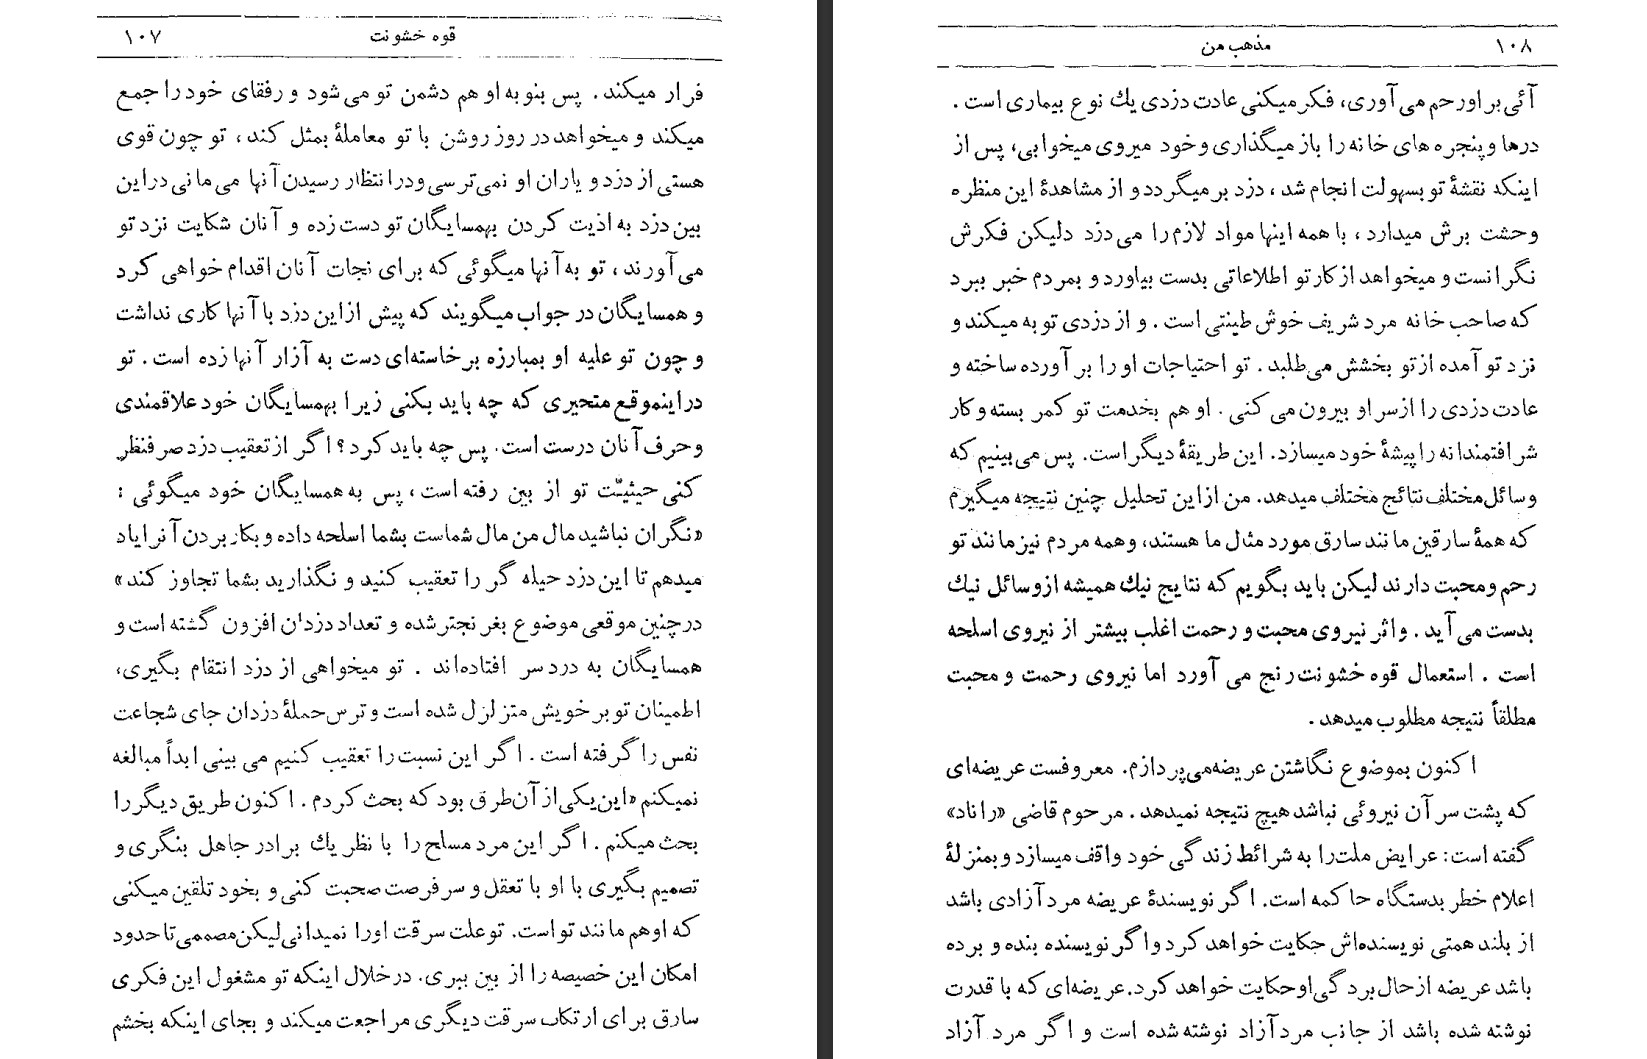 ۱۰۷
قوه خشونت
فرار میکند. پس بنوبه او هم دشمن تو می شود و رفقای خود را جمع
میکند و میخواهد در روز روشن با تو معاملهٔ بمثل کند، تو چون قوی
هستی از دزد و یاران او نمی ترسی و در انتظار رسیدن آنها می مانی در این
بین دزد به اذیت کردن بهمسایگان تو دست زده و آنان شکایت نزد تو
می آورند، تو به آنها میگوئی که برای نجات آنان اقدام خواهی کرد
و همسایگان در جواب میگویند که پیش از این دزد با آنها کاری نداشت
و چون تو علیه او بمبارزه برخاسته‌ای دست به آزار آنها زده است. تو
در اینموقع متحیری که چه باید بکنی زیرا بهمسایگان خود علاقمندی
و حرف آنان درست است. پس چه باید کرد؟ اگر از تعقیب دزد صرفنظر
کنی حیثیّت تو از بین رفته است، پس به همسایگان خود میگوئی:
«نگران نباشید مال من مال شماست بشما اسلحه داده و بکار بردن آنرا یاد
میدهم تا این دزد حیله گر را تعقیب کنید و نگذارید بشما تجاوز کند»
در چنین موقعی موضوع بغرنجتر شده و تعداد دزدان افزون گشته است و
همسایگان به دردسر افتاده‌اند. تو میخواهی از دزد انتقام بگیری،
اطمینان تو بر خویش متزلزل شده است و ترس حملهٔ دزدان جای شجاعت
نفس را گرفته است. اگر این نسبت را تعقیب کنیم می بینی ابداً مبالغه
نمیکنم «این یکی از آن طرق بود که بحث کردم. اکنون طریق دیگر را
بحث میکنم. اگر این مرد مسلح را با نظر یك برادر جاهل بنگری و
تصمیم بگیری با او با تعقل و سر فرصت صحبت کنی و بخود تلقین میکنی
که او هم مانند تو است. تو علت سرقت او را نمیدانی لیکن مصممی تا حدود
امکان این خصیصه را از بین ببری. در خلال اینکه تو مشغول این فکری
سارق برای ارتکاب سرقت دیگری مراجعت میکند و بجای اینکه بخشم
۱۰۸
مذهب من
آئی بر او رحم می آوری، فکر میکنی عادت دزدی یك نوع بیماری است.
درها و پنجره های خانه را باز میگذاری و خود میروی میخوابی، پس از
اینکه نقشهٔ تو بسهولت انجام شد، دزد بر میگردد و از مشاهدهٔ این منظره
وحشت برش میدارد، با همه اینها مواد لازم را می دزد دلیکن فکرش
نگرانست و میخواهد از کار تو اطلاعاتی بدست بیاورد و بمردم خبر ببرد
که صاحب خانه مرد شریف خوش طینتی است. و از دزدی توبه میکند و
نزد تو آمده از تو بخشش می‌طلبد. تو احتیاجات او را بر آورده ساخته و
عادت دزدی را از سر او بیرون می کنی. او هم بخدمت تو کمر بسته و کار
شرافتمندانه را پیشهٔ خود میسازد. این طریقهٔ دیگر است. پس می بینیم که
وسائل مختلف نتائج مختلف میدهد. من از این تحلیل چنین نتیجه میگیرم
که همهٔ سارقین مانند سارق مورد مثال ما هستند، و همه مردم نیز مانند تو
رحم و محبت دارند لیکن باید بگویم که نتایج نیك همیشه از وسائل نیك
بدست می آید. و اثر نیروی محبت و رحمت اغلب بیشتر از نیروی اسلحه
است. استعمال قوه خشونت رنج می آورد اما نیروی رحمت و محبت
مطلقاً نتیجه مطلوب میدهد.
اکنون بموضوع نگاشتن عریضه می‌پردازم. معروفست عریضه‌ای
که پشت سر آن نیروئی نباشد هیچ نتیجه نمیدهد. مرحوم قاضی «راناد»
گفته است: عرایض ملت را به شرائط زندگی خود واقف میسازد و بمنزلهٔ
اعلام خطر بدستگاه حاکمه است. اگر نویسندهٔ عریضه مرد آزادی باشد
از بلند همتی نویسنده‌اش حکایت خواهد کرد و اگر نویسنده بنده و برده
باشد عریضه از حال بردگی او حکایت خواهد کرد. عریضه‌ای که با قدرت
نوشته شده باشد از جانب مرد آزاد نوشته شده است و اگر مرد آزاد